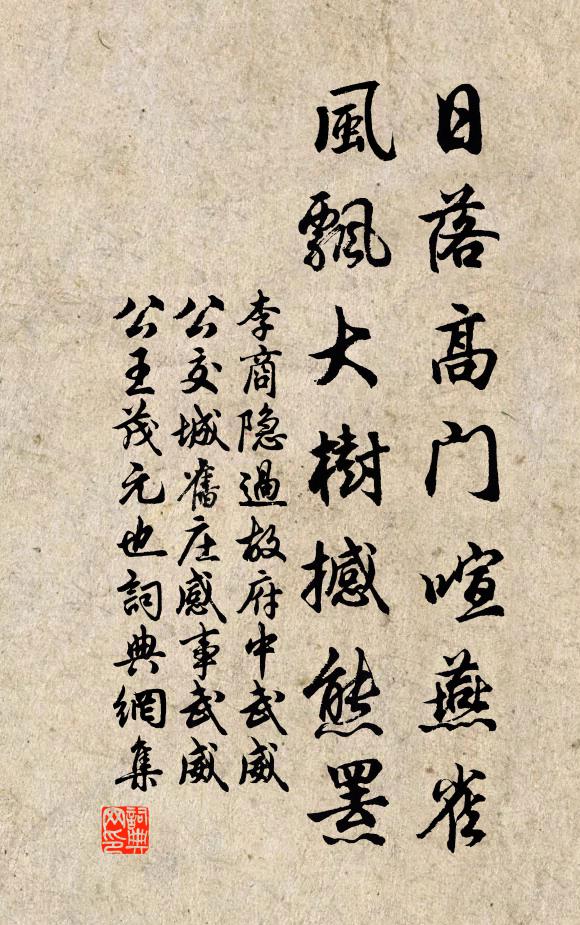 日落高门喧燕雀
風飄大樹撼熊羆
李商隐過故府中武威
公交城舊庄感事武威
公王茂元也詞典網集
詞典網印